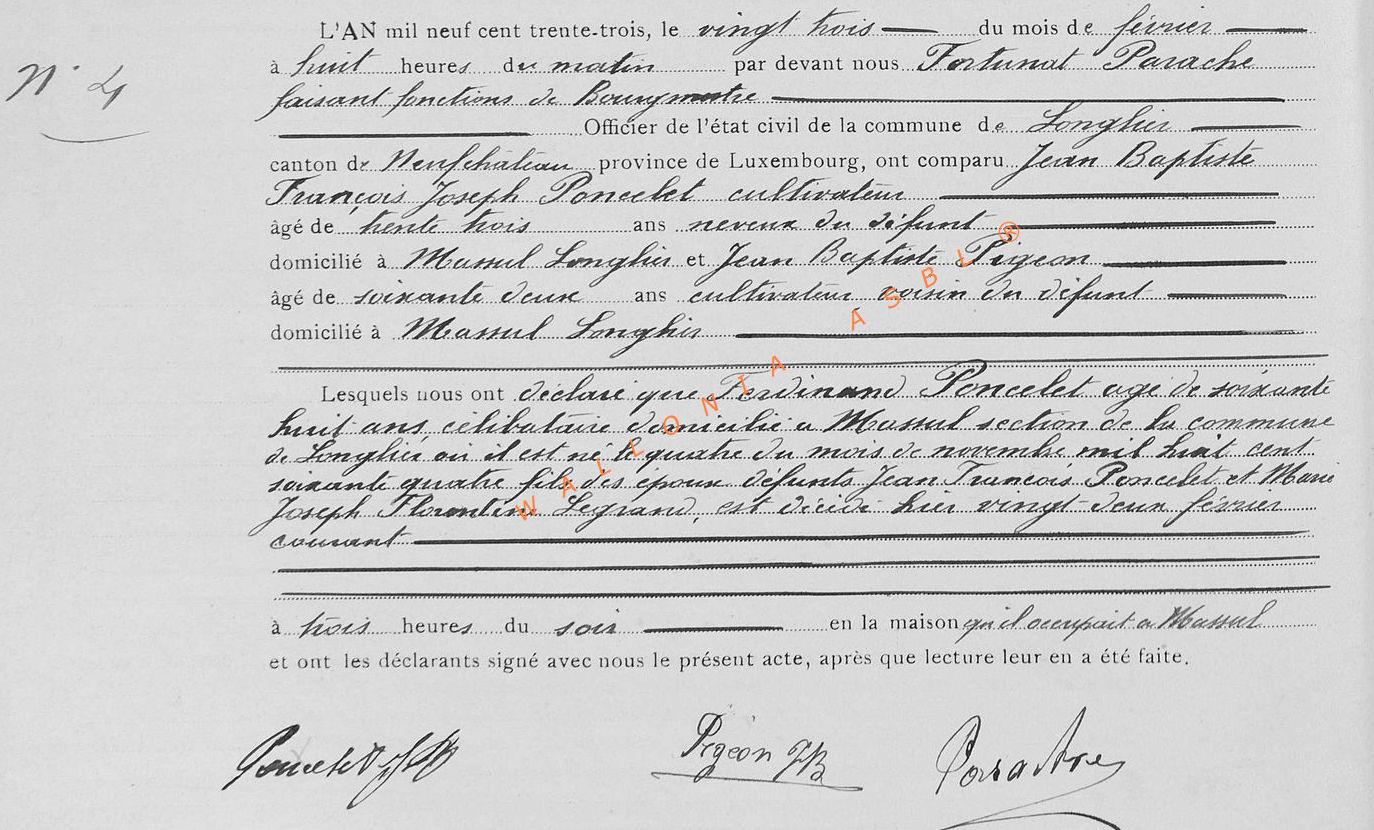 L'AN mil neuf cent trente-trois, le vingt trois du mois de février
à huit heures du matin par devant nous Fortunat Parache
N° 4
faisant fonctions de Bourgmestre
Officier de l'état civil de la commune de Longlier
canton de Neufchâteau province de Luxembourg, ont comparu Jean Baptiste
François Joseph Poncelet cultivateur
âgé de trente trois ans neveux du défunt
domicilié à Massul Longlier et Jean Baptiste Pigeon
âgé de soixante deux ans cultivateur voisin du défunt
domicilié à Massul Longlier
Lesquels nous ont déclaré que Ferdinand Poncelet agé de soixante
huit ans, célibataire domicilié a Massul section de la commune
de Longlier où il est né le quatre du mois de novembre mil huit cent
soixante quatre fils des époux défunts Jean François Poncelet et Marie
Joseph Florentine Legrand, est décédé hier vingt-deux février
courant
à trois heures du soir en la maison qu'il occupait a Massul
et ont les déclarants signé avec nous le présent acte, après que lecture leur en a été faite.
Poncelet Pigeon JB
WALLONIA ASBL ®